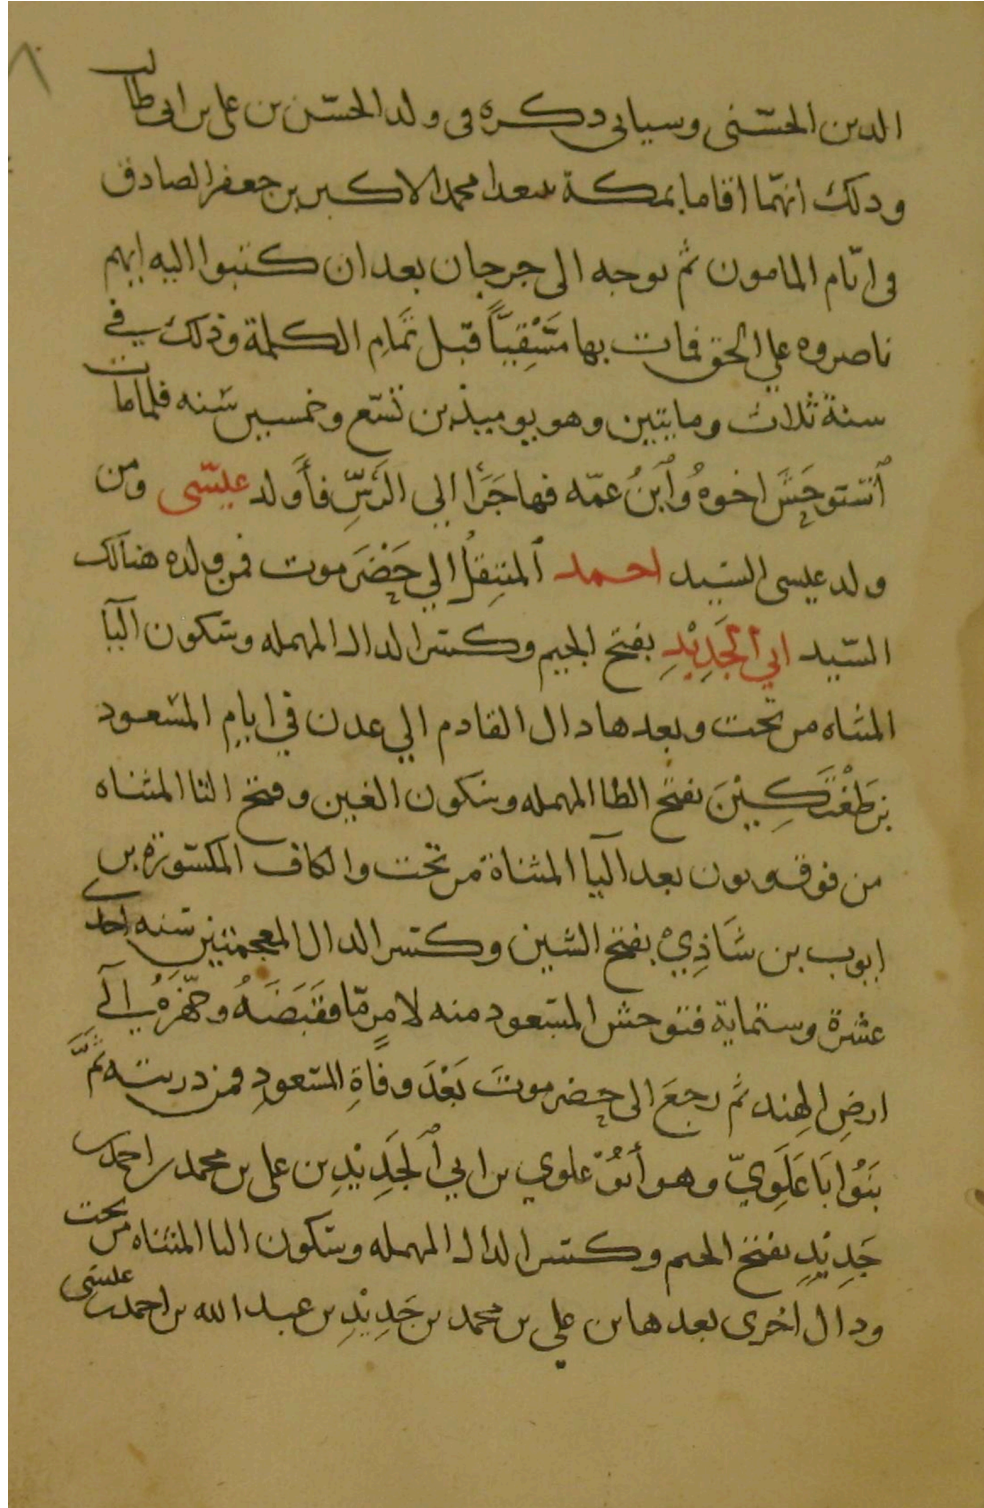 الدين الحسني وسياتي ذكره في ولد الحسن بن علي بن ابي طالب
وذلك انهما اقاما بمكة بعدا محمد الاكبر بن جعفر الصادق
في ايام المامون ثم توجه الى جرجان بعد ان كتبوا اليه انهم
ناصروه علي الحق فمات بها مَسْقِيّاً قبل تمامِ الكلمة وذلك في
سنة ثلاث ومايتين وهو يوميذ بن تسع وخمسين سنه فلما مات
ٱستوحَشَ اخوهُ وٱبنُ عمّه فهاجَرَا الي الرَّسِّ فأَولد عيسى ومن
ولد عيسى السيد احمد ٱلمنتقِلُ الي حَضْرَموت فمن ولده هنالك
السّيد ابي ٱلجَدِيْدِ بفتح الجيم وكسر الدال المهمله وسكون اليا
المثناه من تحت وبعدها دال القادم الي عدن في ايام المسعود
بن طَغْتَكِيْنَ بفتح الطا المهمله وسكون الغين وفتح التا المثناه
من فوقه ونون بعد اليا المثناة من تحت والكاف المكسورة بن
ايوب بن شَاذِيْ بفتح الشين وكسر الذال المعجمتين سنه احدى
عشرة وستماية فتوحش المسعود منه لامرٍ مّا فقَبَضَهُ وجهّزهُ الَي
ارضِ الهِند ثم رجعَ الى حضرموتَ بَعْدَ وفاةِ المسعودِ فمن ذريته ثمَّ
بَنُوا بَا عَلَوِيّ وهو أبُوْ علوي بن ابي ٱلجَدِيْدِ بن علي بن محمد بن احمد بن
جَدِيْدِ بفتح الجيم وكسر الدال المهمله وسكون اليا المثناه من تحت
ودال اخرى بعدها بن علي بن محمد بن جَدِيْدِ بن عبد الله بن احمد بن عيسى